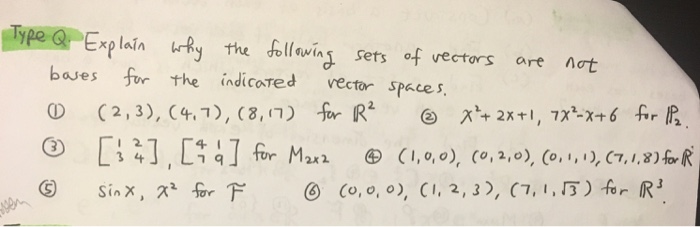 Type Q Explain why the following sets of vectors are not
bases for the indicated vector spaces.
① (2,3), (4,7), (8,17) for ℝ² ② x²+2x+1, 7x²-x+6 for ℙ₂.
③ [1 2 / 3 4], [4 1 / 7 9] for M₂ₓ₂ ④ (1,0,0), (0,2,0), (0,1,1), (7,1,8) for ℝ
⑤ sinx, x² for F ⑥ (0,0,0), (1,2,3), (7,1,√3) for ℝ³.